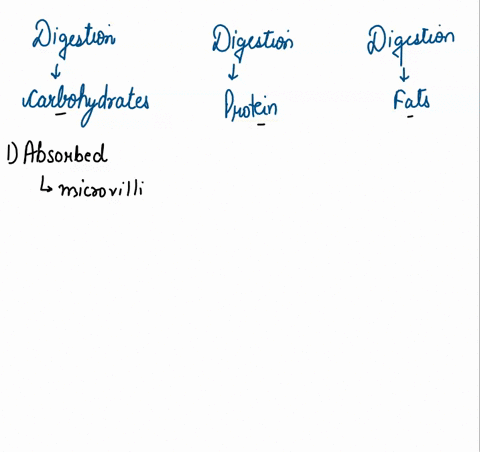 Digestion Digestion Digestion
↓ ↓ ↓
Carbohydrates Protein Fats
1) Absorbed
↳ microvilli